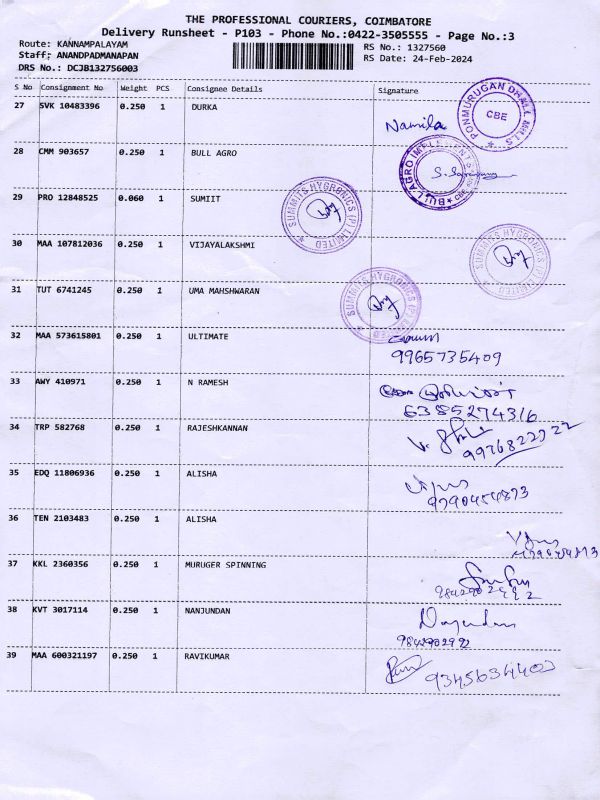 THE PROFESSIONAL COURIERS, COIMBATORE
Delivery Runsheet - P103 - Phone No.:0422-3505555 - Page No.:3
Route: KANNAMPALAYAM
RS No.: 1327560
Staff: ANANDPADMANAPAN
RS Date: 24-Feb-2024
DRS No.: DCJB132756003
S No Consignment No Weight PCS Consignee Details Signature
27 SVK 10483396 0.250 1 DURKA
Namila
PONMURUGAN DHALL MILLS CBE
28 CMM 903657 0.250 1 BULL AGRO
BULL AGRO IMPLEMENTS
29 PRO 12848525 0.060 1 SUMIIT
SUMMITS HYGRONICS (P) LIMITED
30 MAA 107812036 0.250 1 VIJAYALAKSHMI
SUMMITS HYGRONICS (P) LIMITED
31 TUT 6741245 0.250 1 UMA MAHSHWARAN
SUMMITS HYGRONICS (P) LIMITED
32 MAA 573615801 0.250 1 ULTIMATE
9965735409
33 AWY 410971 0.250 1 N RAMESH
6385274316
34 TRP 582768 0.250 1 RAJESHKANNAN
35 EDQ 11806936 0.250 1 ALISHA
9790454873
36 TEN 2103483 0.250 1 ALISHA
37 KKL 2360356 0.250 1 MURUGER SPINNING
38 KVT 3017114 0.250 1 NANJUNDAN
9842902992
39 MAA 600321197 0.250 1 RAVIKUMAR